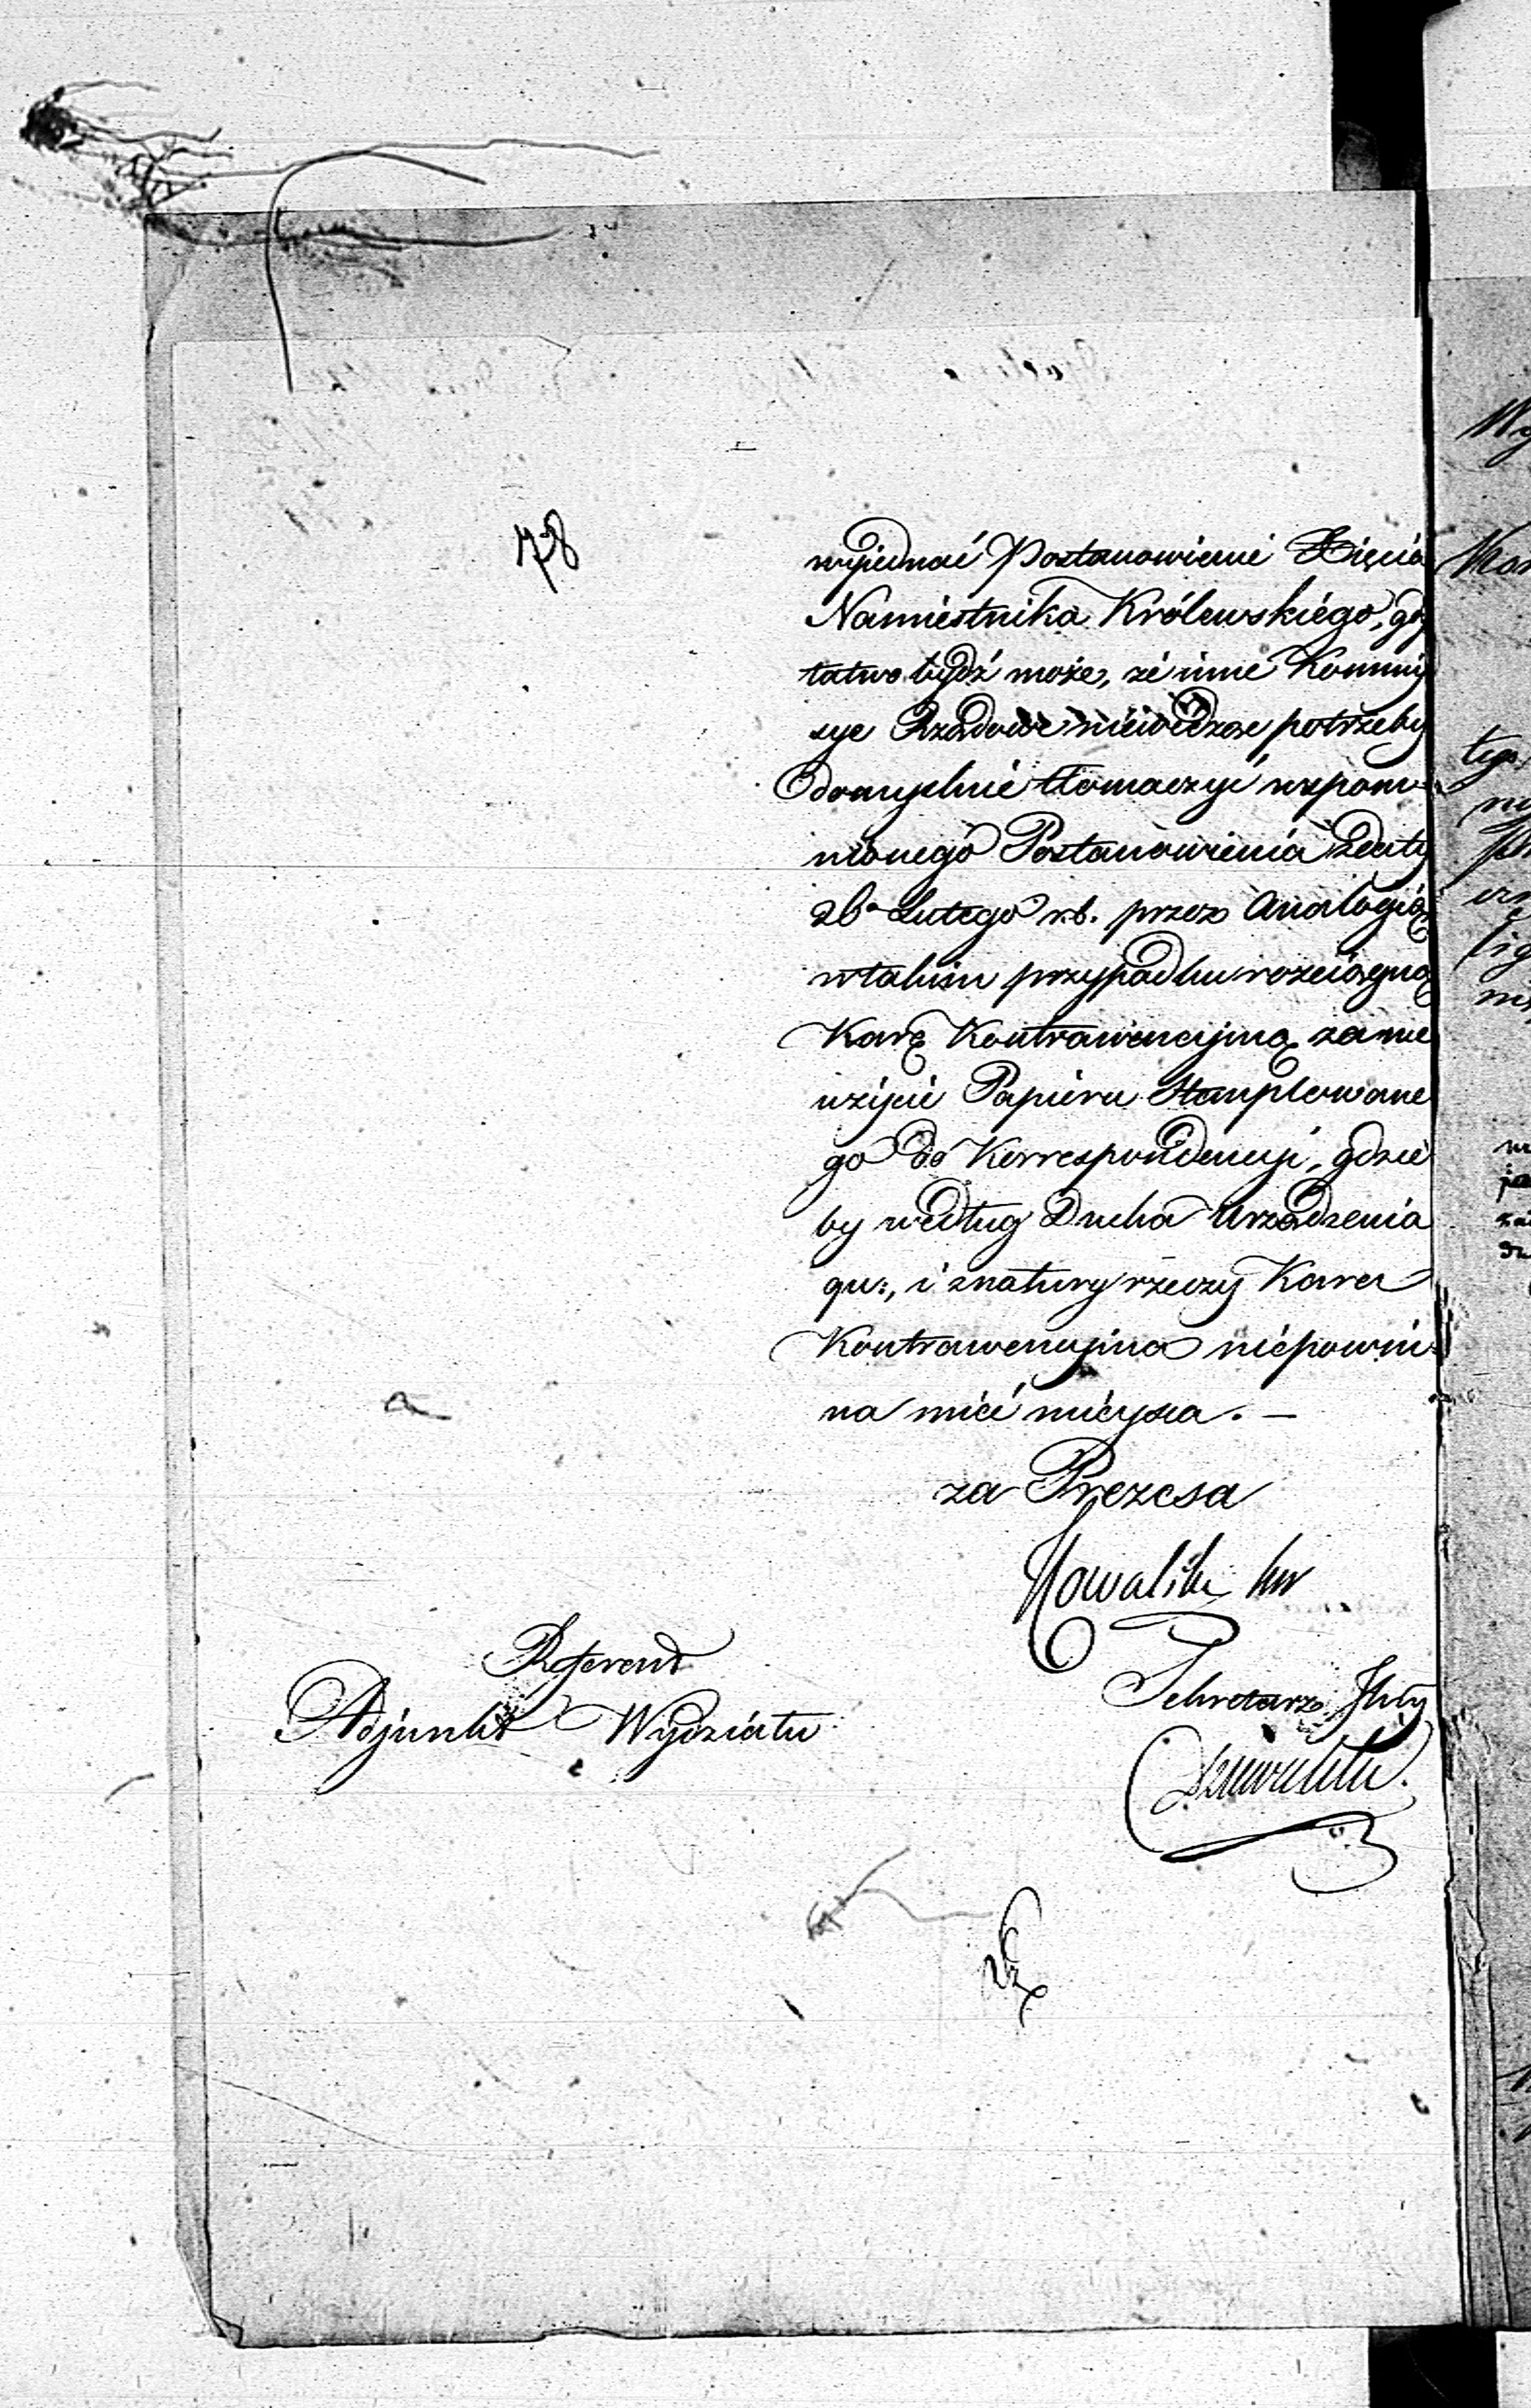 78
wyiednać Postanowienie Xięcia
Namiestnika Królewskiego, gdy
łatwo bydź może, że inne Kommis
sye Rządowe niewidząc potrzeby
domyślnie tłomaczyć wspom-
nionego Postanowienia z daty
26. Lutego r.b. przez Analogią
w takim przypadku rozciągną
Karę Kontrawencyiną za nie
użycie Papieru Stemplowane
go do Korrespondencyi, gdzie
by według Ducha Urządzenia
qu:, i z natury rzeczy Kara
Kontrawencyina niepowin-
na mieć mieysca. —
za Prezesa
Sekretarz Jlny
Referent
Adjunkt Wydziału